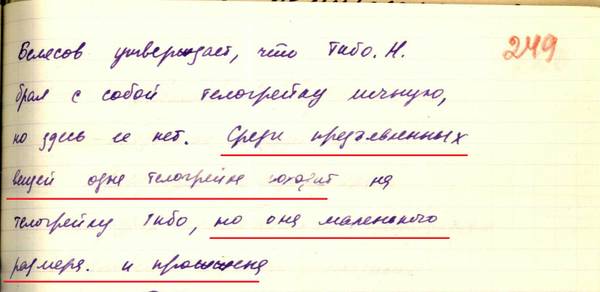 Белясов утверждает, что Тибо. Н. 249
брал с собой телогрейку личную,
но здесь ее нет. Среди предъявленных
вещей одна телогрейка походит на
телогрейку Тибо, но она маленького
размера. и прошита